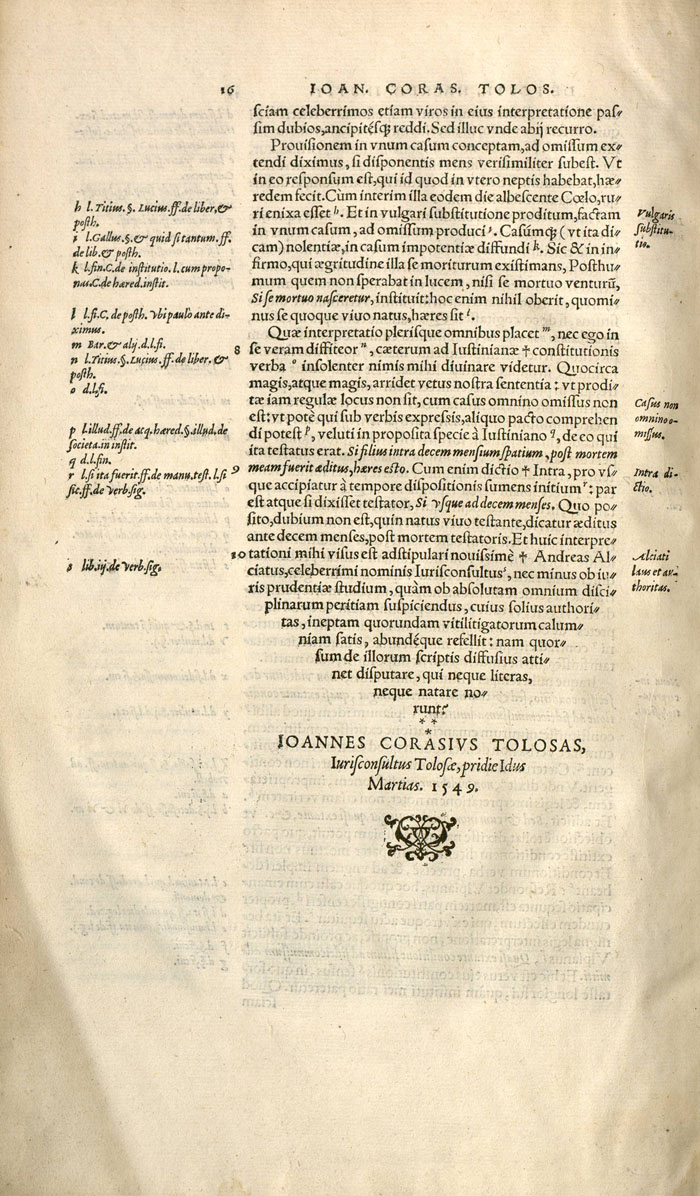 16
IOAN. CORAS. TOLOS.
sciam celeberrimos etiam viros in eius interpretatione pas⸗
sim dubios, ancipitésq; reddi. Sed illuc vnde abij recurro.
Prouisionem in vnum casum conceptam, ad omissum ex⸗
tendi diximus, si disponentis mens verisimiliter subest. Vt
in eo responsum est, qui id quod in vtero neptis habebat, hæ⸗
redem fecit. Cùm interim illa eodem die albescente Cœlo, ru⸗
ri enixa esset h. Et in vulgari substitutione proditum, factam
in vnum casum, ad omissum produci i. Casúmq; ( vt ita di⸗
cam) nolentiæ, in casum impotentiæ diffundi k. Sic & in in⸗
firmo, qui ægritudine illa se moriturum existimans, Posthu⸗
mum quem non sperabat in lucem, nisi se mortuo venturũ,
Si se mortuo nasceretur, instituit: hoc enim nihil oberit, quomi⸗
nus se quoque viuo natus, hæres sit l.
Quæ interpretatio plerisque omnibus placet m, nec ego in
8 se veram diffiteor n, cæterum ad Iustinianæ † constitutionis
verba o insolenter nimis mihi diuinare videtur. Quocirca
magis, atque magis, arridet vetus nostra sententia: vt prodi⸗
tæ iam regulæ locus non sit, cum casus omnino omissus non
est: vt potè qui sub verbis expressis, aliquo pacto comprehen
di potest p, veluti in proposita specie à Iustiniano q, de eo qui
ita testatus erat. Si filius intra decem mensium spatium, post mortem
9 meam fuerit æditus, hæres esto. Cum enim dictio † Intra, pro vs⸗
que accipiatur à tempore dispositionis sumens initium r: par
est atque si dixisset testator, Si vsque ad decem menses. Quo po⸗
sito, dubium non est, quin natus viuo testante, dicatur æditus
ante decem menses, post mortem testatoris. Et huic interpre⸗
10 tationi mihi visus est adstipulari nouissimè † Andreas Al⸗
ciatus, celeberrimi nominis Iurisconsultus s, nec minus ob iu⸗
ris prudentiæ studium, quàm ob absolutam omnium disci⸗
plinarum peritiam suspiciendus, cuius solius authori⸗
tas, ineptam quorundam vitilitigatorum calum⸗
niam satis, abundéque refellit: nam quor⸗
sum de illorum scriptis diffusius atti⸗
net disputare, qui neque literas,
neque natare no⸗
runt?
* *
*
IOANNES CORASIVS TOLOSAS,
Iurisconsultus Tolosæ, pridie Idus
Martias. 1549.
h l. Titius. §. Lucius. ff. de liber. &
posth.
i l. Gallus. §. & quid si tantum. ff.
de lib. & posth.
k l. fin. C. de institutio. l. cum propo⸗
nas. C. de hæred. instit.
l l. fi. C. de posth. vbi paulo ante di⸗
ximus.
m Bar. & alij. d. l. fi.
n l. Titius. §. Lucius. ff. de liber. &
posth.
o d. l. fi.
p l. illud. ff. de acq. hæred. §. illud. de
societa. in instit.
q d. l. fin.
r l. si ita fuerit. ff. de manu. test. l. si
sic. ff. de verb. sig.
s lib. ij. de verb. sig.
Vulgaris
substitu⸗
tio.
Casus non
omnino o⸗
missus.
Intra di⸗
ctio.
Alciati
laus et au⸗
thoritas.